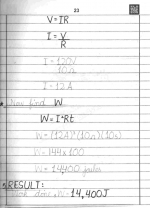 23
V=IR
I=V/R
I=120V
10Ω
I=12A
Now find W
W=I²Rt
W=(12A)²(10Ω)(10s)
W=144x100
W=14,400 joules
RESULT:
Work done, W=14,400J